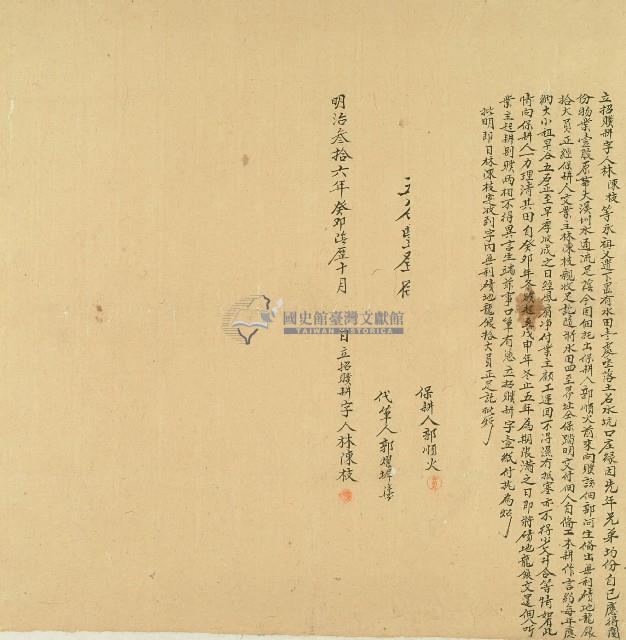 立招贌耕字人林陳枝等承祖父遺下置有水田壹處坐落土名水坑口庄緣因先年兄弟均份自己應得鬮
份物業壹股原帶大溪圳水通流足蔭今因佃托出保耕人郭順火前來向贌該佃郭阿生備出無利磧地龍銀
拾大員正經保耕人交業主林陳枝親收足訖隨將水田四至界址仝保踏明交付佃人自備工本耕作言約每年應
納大小租早谷五石正至早季收成之日經風扇淨付業主顧工運回不得濕冇抵塞亦不得少欠升合等情如有此
情向保耕人一力理清其田自癸卯年冬贌起至戊申年冬止五年為期限滿之日即將磧地龍銀交還佃人
業主起耕別贌兩相不得異言生端滋事口筆有憑立招贌耕字壹紙付執為炤
批明即日林陳枝實收到字內無利磧地龍銀拾大員正足訖批炤
保耕人郭順火
代筆人郭
明治叁拾六年癸卯陰歷十月
日立招贌耕字人林陳枝
國史館臺灣文獻館
TAIWAN HISTORICA